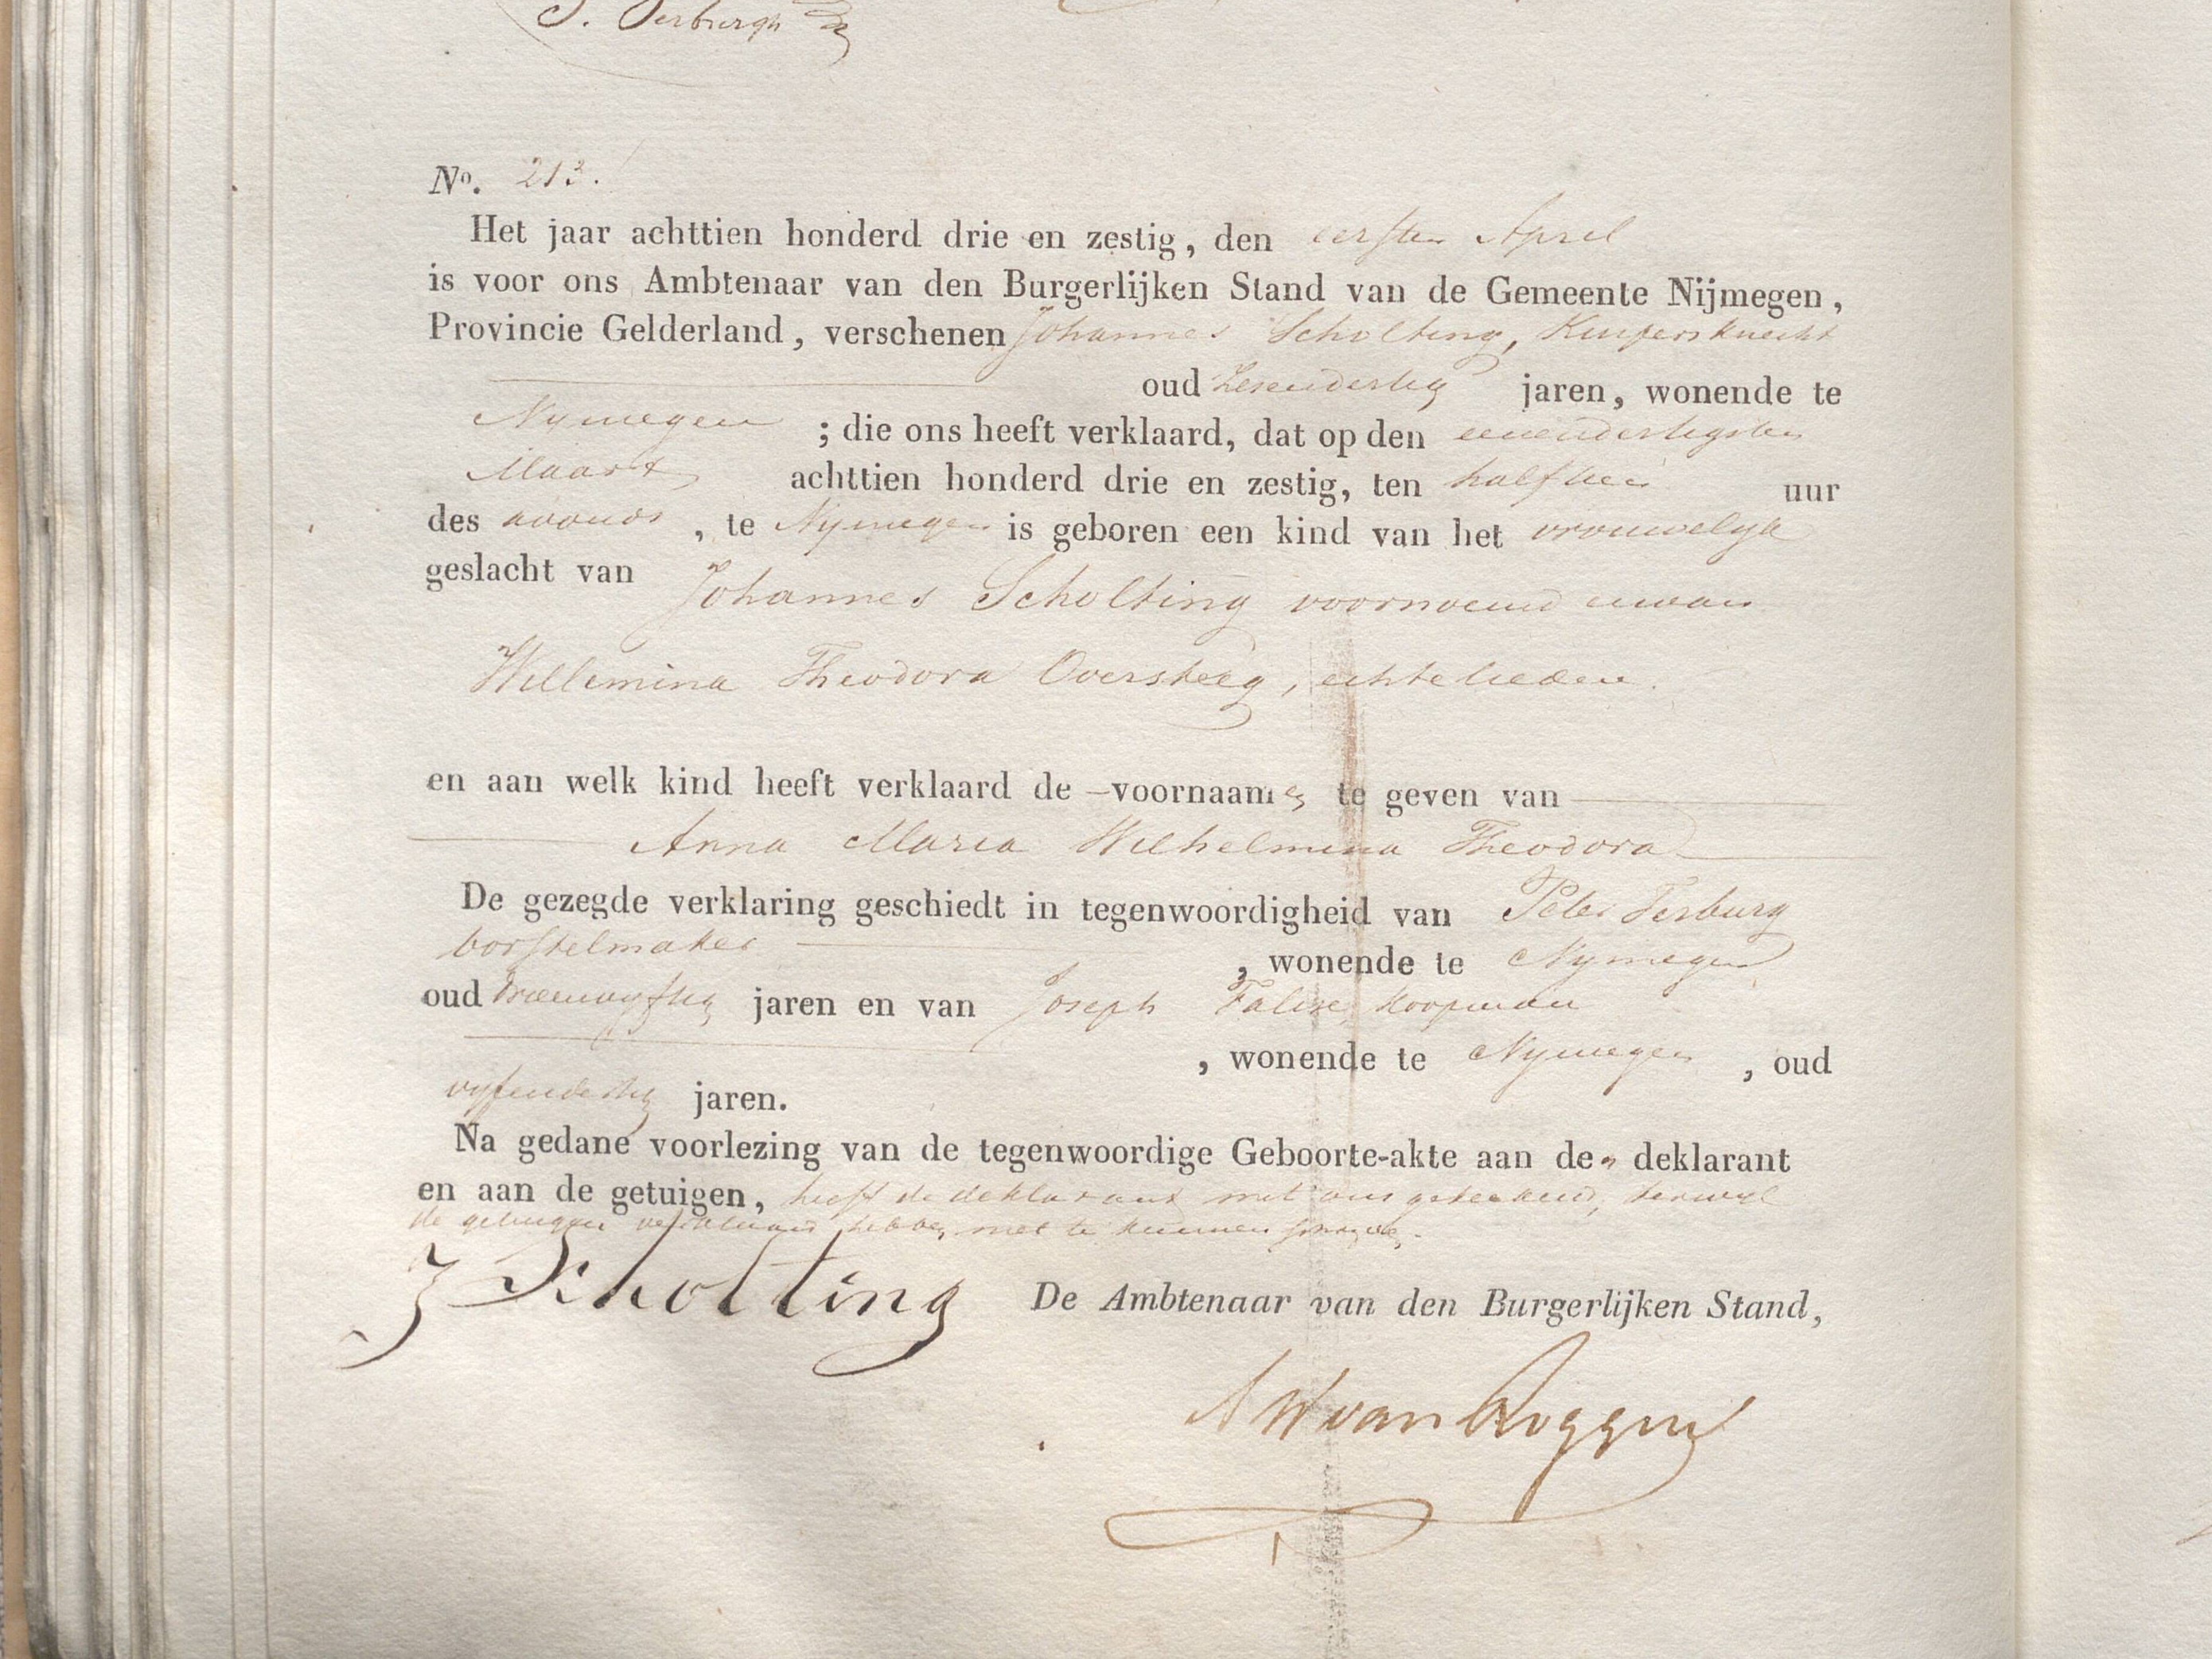 No. 213.
Het jaar achttien honderd drie en zestig, den eersten April
is voor ons Ambtenaar van den Burgerlijken Stand van de Gemeente Nijmegen,
Provincie Gelderland, verschenen Johannes Scholting, Kuipersknecht
oud Zesendertig jaren, wonende te
Nymegen ; die ons heeft verklaard, dat op den eenendertigsten
Maart achttien honderd drie en zestig, ten half tien uur
des avonds, te Nymegen is geboren een kind van het vrouwelyk
geslacht van Johannes Scholting voornoemd en van
Willemina Theodora Oversteeg, echtelieden.
en aan welk kind heeft verklaard de voornaam en te geven van
Anna Maria Wilhelmina Theodora
De gezegde verklaring geschiedt in tegenwoordigheid van Peter Terburg
borstelmaker , wonende te Nymegen
oud drieenvyftig jaren en van Joseph Falize, Koopman
, wonende te Nymegen , oud
vyfendertig jaren.
Na gedane voorlezing van de tegenwoordige Geboorte-akte aan den deklarant
en aan de getuigen, heeft de deklarant met ons geteekend, terwyl
de getuigen verklaard hebben niet te kunnen
J Scholting De Ambtenaar van den Burgerlijken Stand,